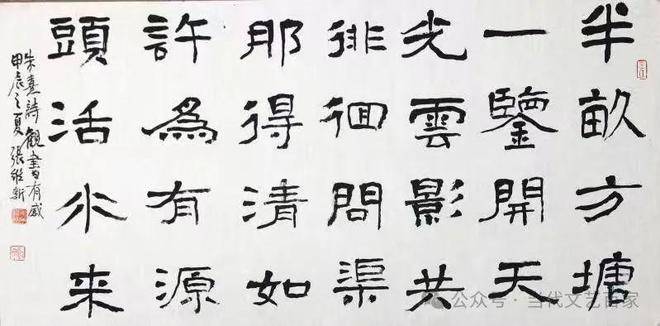 半畝方塘
一鑒開天
光雲影共
徘徊問渠
那得清如
許為有源
頭活水来
朱熹詩觀書有感
甲辰之夏張維新
公众号·当代文艺百家